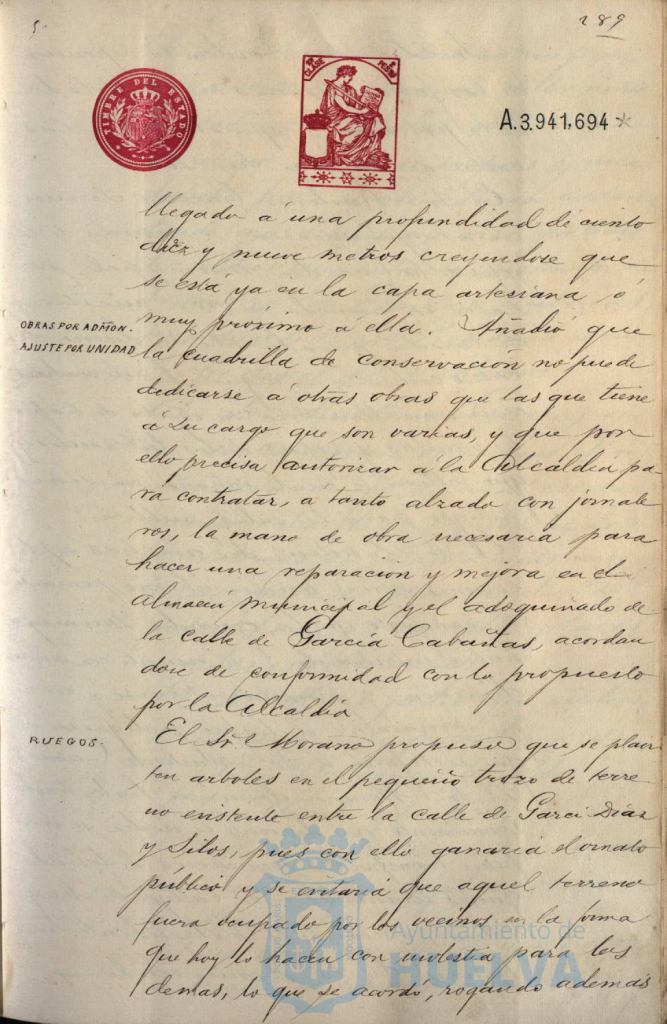 5.
289
TIMBRE DEL ESTADO
A.3.941,694*
llegado á una profundidad de ciento
diez y nueve metros creyendose que
se está ya en la capa artesiana ó
muy próximo á ella. Añadió que
OBRAS POR ADMON.
AJUSTE POR UNIDAD
la cuadrilla de conservación no puede
dedicarse á otras obras que las que tiene
á su cargo que son varias, y que por
ello precisa autorizar á la Alcaldía pa
ra contratar, á tanto alzado con jornale
ros, la mano de obra necesaria para
hacer una reparación y mejora en el
almacén municipal y el adoquinado de
la calle de García Cabañas, acordan
dose de conformidad con lo propuesto
por la Alcaldía
RUEGOS.
El Sr. Morano propuso que se plan
ten arboles en el pequeño trozo de terre
no existente entre la calle de Garci Díaz
y Silos, pues con ello ganaría el ornato
público y se evitaría que aquel terreno
fuera ocupado por los vecinos en la forma
que hoy lo hacen con molestia para los
demas, lo que se acordó, rogando además
Ayuntamiento de
HUELVA